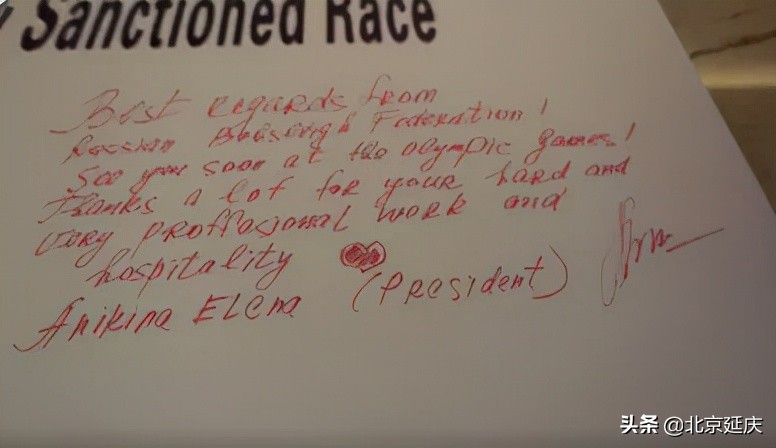 Sanctioned Race
Best regards from
Russian Federation!
See you soon at the olympic games!
Thanks a lot for your hard and
very proffasional work and
hospitality
Anikina Elena (President)
头条 @北京延庆